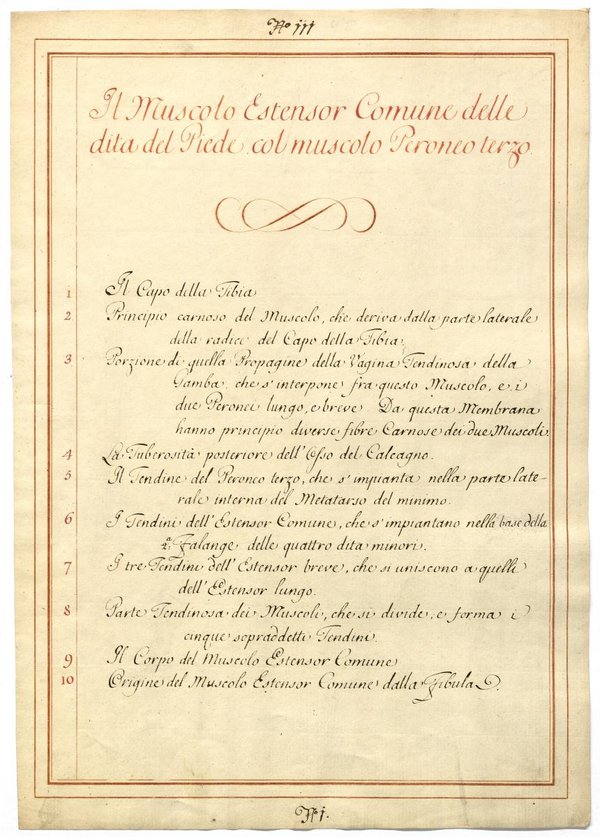 No III
Il Muscolo Estensor Comune delle
dita del Piede, col muscolo Peroneo terzo.
1 Il Capo della Tibia
2 Principio carnoso del Muscolo, che deriva dalla parte laterale
della radice del Capo della Tibia.
3 Porzione di quella Propagine della Vagina Tendinosa della
Gamba, che s'interpone fra questo Muscolo, e i
due Peronei lungo, e breve. Da questa Membrana
hanno principio diverse fibre Carnose dei due Muscoli.
4 La Tuberosità posteriore dell'Osso del Calcagno.
5 Il Tendine del Peroneo terzo, che s'impianta nella parte late-
rale interna del Metatarso del minimo.
6 I Tendini dell'Estensor Comune, che s'impiantano nella base della
2.a Falange delle quattro dita minori.
7 I tre Tendini dell'Estensor breve, che si uniscono a quelli
dell'Estensor lungo.
8 Parte Tendinosa dei Muscoli, che si divide, e forma i
cinque sopraddetti Tendini.
9 Il Corpo del Muscolo Estensor Comune
10 Origine del Muscolo Estensor Comune dalla Fibula.